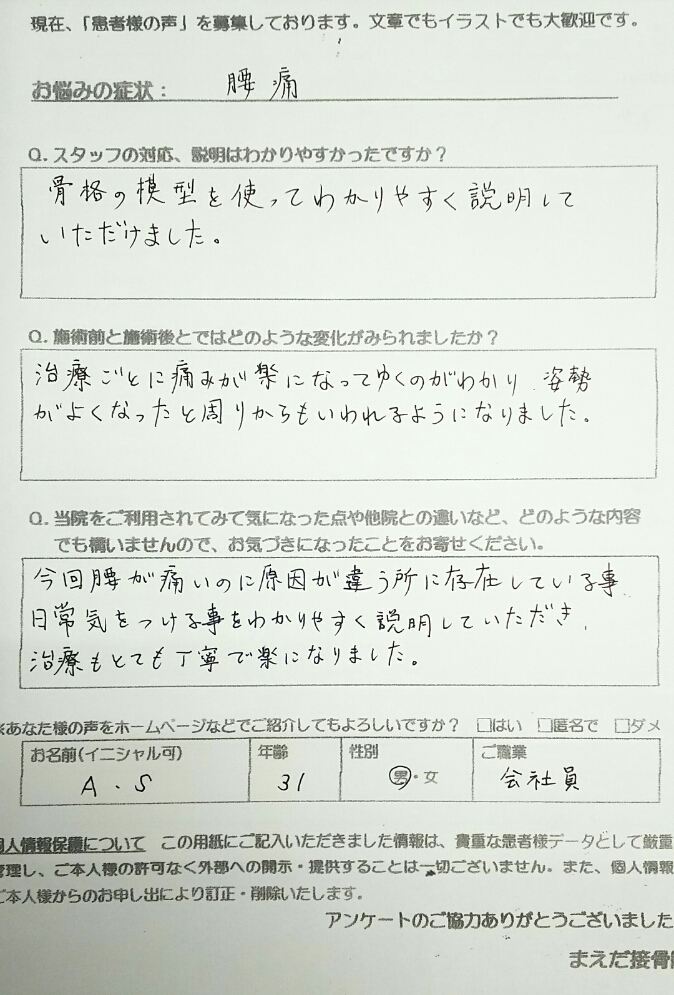 現在、「患者様の声」を募集しております。文章でもイラストでも大歓迎です。
お悩みの症状： 腰痛
Q. スタッフの対応、説明はわかりやすかったですか？
骨格の模型を使ってわかりやすく説明して
いただけました。
Q. 施術前と施術後とではどのような変化がみられましたか？
治療ごとに痛みが楽になってゆくのがわかり、姿勢
がよくなったと周りからもいわれるようになりました。
Q. 当院をご利用されてみて気になった点や他院との違いなど、どのような内容
でも構いませんので、お気づきになったことをお寄せください。
今回腰が痛いのに原因が違う所に存在している事、
日常気をつける事をわかりやすく説明していただき、
治療もとても丁寧で楽になりました。
※あなた様の声をホームページなどでご紹介してもよろしいですか？ □はい □匿名で □ダメ
お名前(イニシャル可) 年齢 性別 ご職業
A・S 31 男・女 会社員
個人情報保護について この用紙にご記入いただきました情報は、貴重な患者様データとして厳重
管理し、ご本人様の許可なく外部への開示・提供することは一切ございません。また、個人情報
ご本人様からのお申し出により訂正・削除いたします。
アンケートのご協力ありがとうございました
まえだ接骨